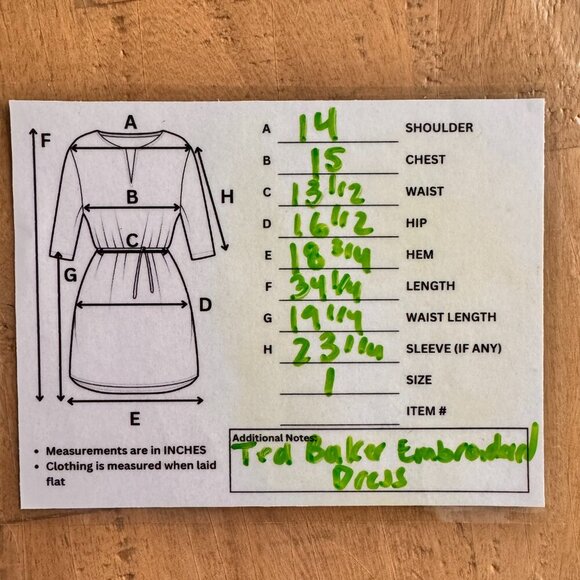 A
F
B
H
C
G
D
E
A 14 SHOULDER
B 15 CHEST
C 13 1/2 WAIST
D 16 1/2 HIP
E 18 3/4 HEM
F 34 1/4 LENGTH
G 19 1/4 WAIST LENGTH
H 23 1/4 SLEEVE (IF ANY)
1 SIZE
ITEM #
• Measurements are in INCHES
• Clothing is measured when laid
flat
Additional Notes:
Ted Baker Embroidered
Dress